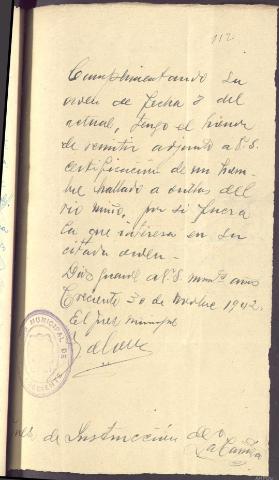 112.
Cumplimentando su
orden de fecha 3 del
actual, tengo el honor
de remitir adjunto a S.S.
certificación de un hom-
bre hallado a orillas del
río Miño, por si fuera
la que interesa en su
citada orden.
Dios guarde a S.S. años
Creciente 30 de 1942.
El Juez municipal
MUNICIPAL DE
de Instrucción de
La Cañiza